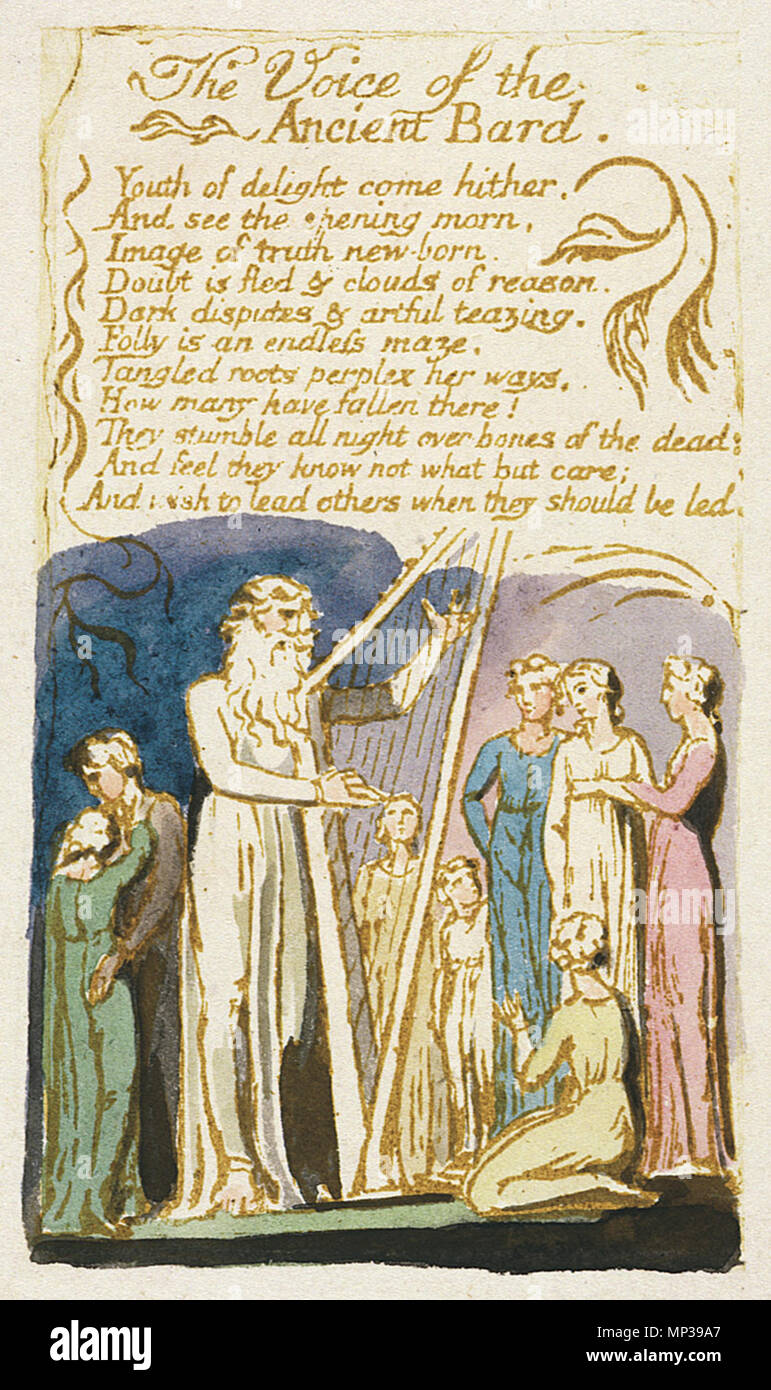 The Voice of the
Ancient Bard.
Youth of delight come hither,
And see the opening morn,
Image of truth new-born.
Doubt is fled & clouds of reason.
Dark disputes & artful teazing.
Folly is an endleſs maze,
Tangled roots perplex her ways,
How many have fallen there!
They stumble all night over bones of the dead;
And feel they know not what but care;
And wish to lead others when they should be led.
alamy
alamy
Image ID: MP39A7
www.alamy.com